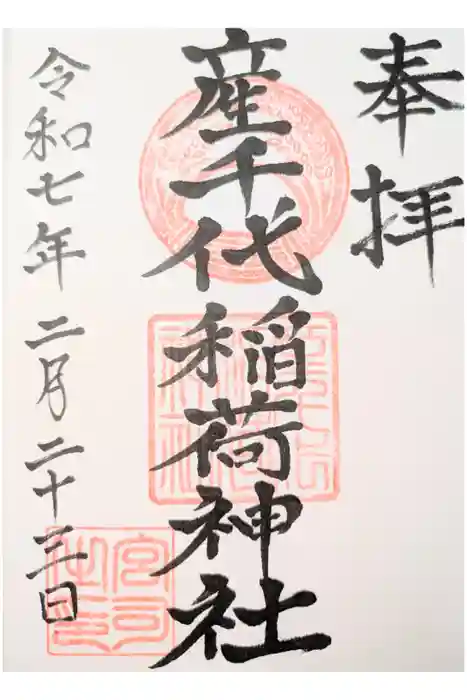 奉拝
産千代稲荷神社
令和七年二月二十三日
宮司之印